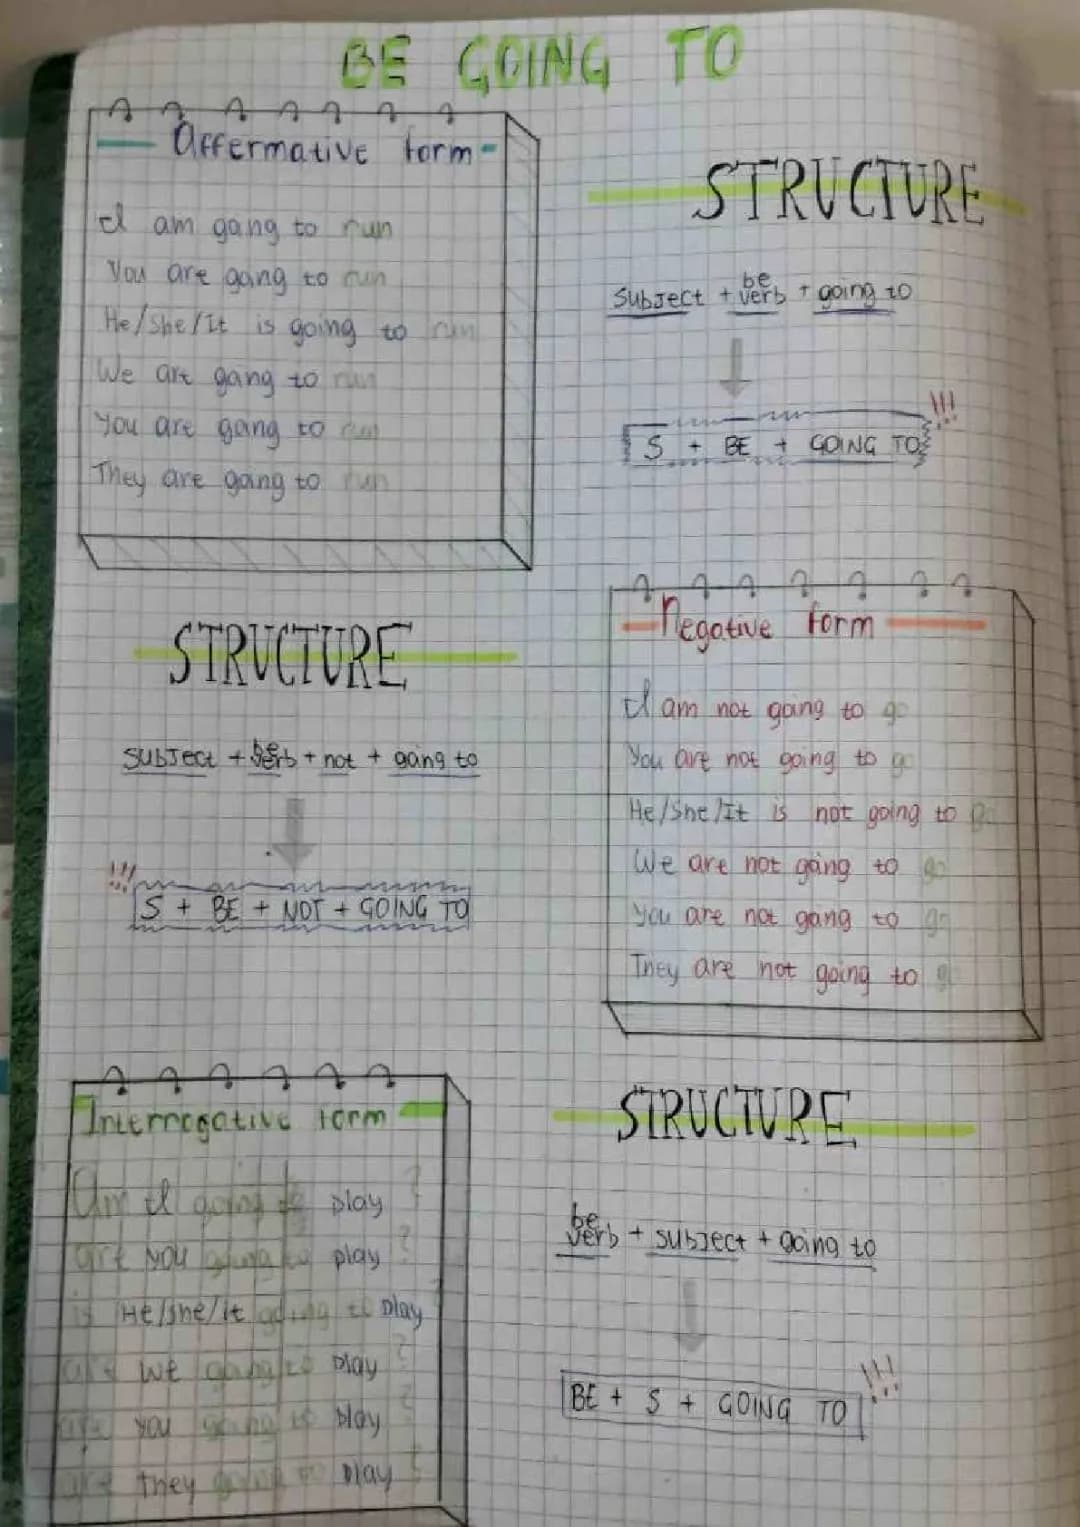 BE GOING TO
Affermative form
I am going to run
You are going to run
He/She/It is going to run
We are going to run
You are going to run
They are going to run
STRUCTURE
Subject + be verb + going to
S + BE + GOING TO
!!!
STRUCTURE
Subject + be verb + not + going to
!!!
S + BE + NOT + GOING TO
Negative form
I am not going to go
You are not going to go
He/She/It is not going to go
We are not going to go
You are not going to go
They are not going to go
Interrogative form
Am I going to play ?
are you going to play ?
is He/she/it going to play ?
are we going to play ?
are you going to play ?
are they going to play ?
STRUCTURE
be verb + subject + going to
BE + S + GOING TO
!!!